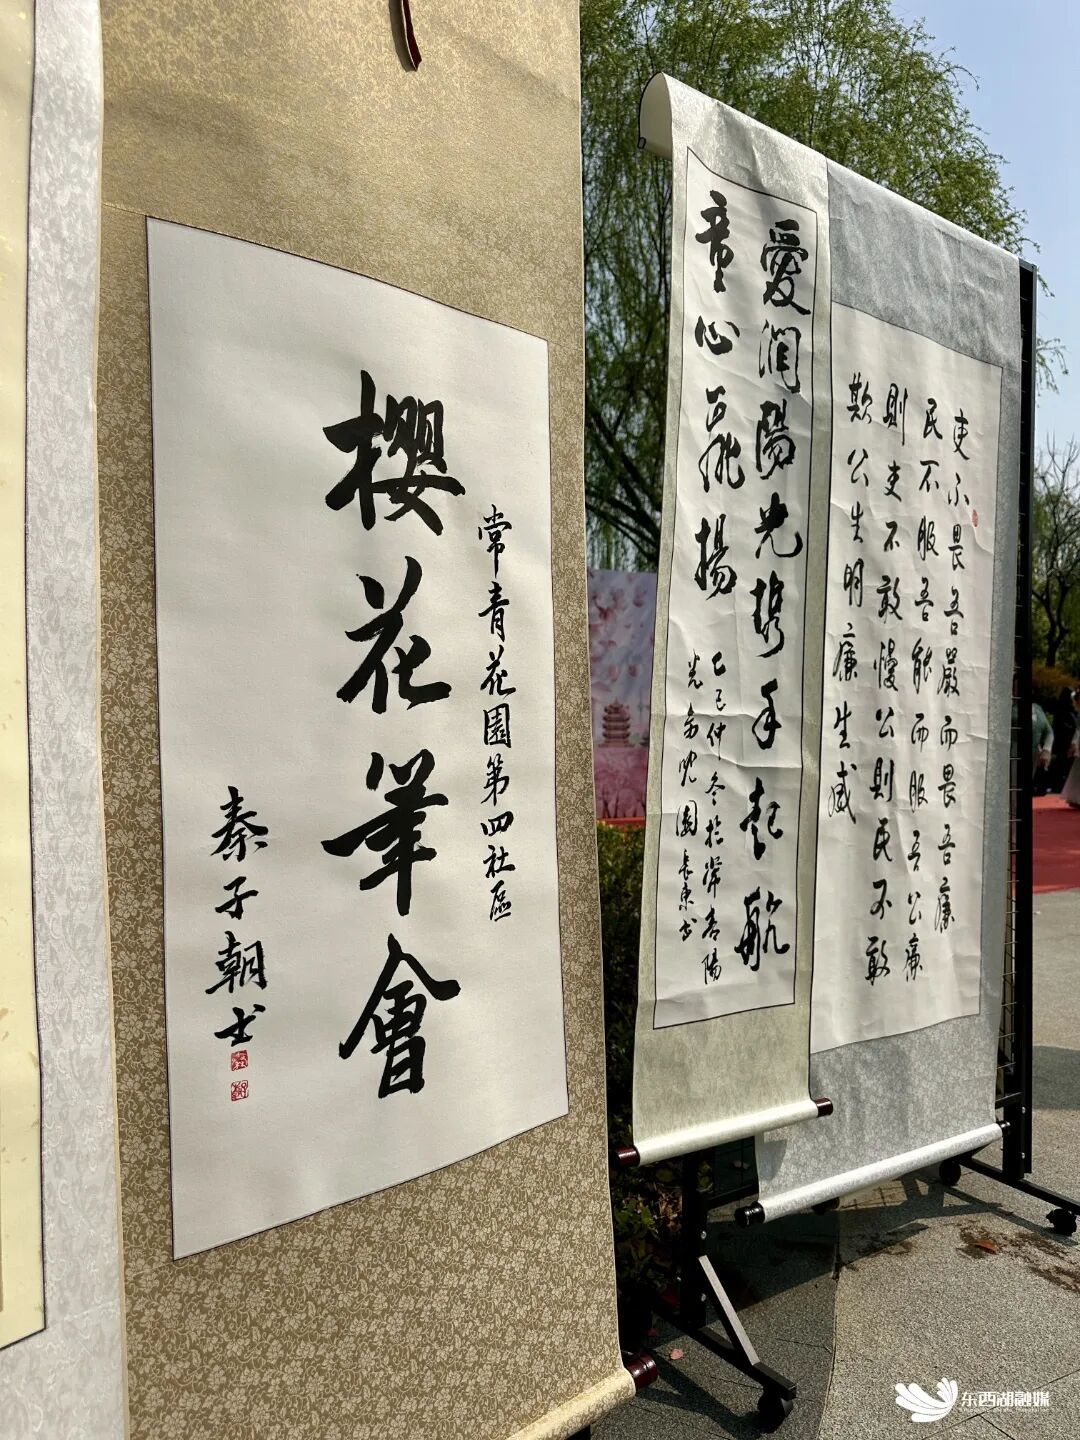 常青花園第四社區
櫻花筆會
秦子朝书
愛潤陽光携手起航
童心飛揚
乙巳仲冬於常青陽
光幼兒園長東书
吏不畏吾嚴而畏吾廉
民不服吾能而服吾公廉
則吏不敢慢公則民不敢
欺公生明廉生威
东西湖融媒